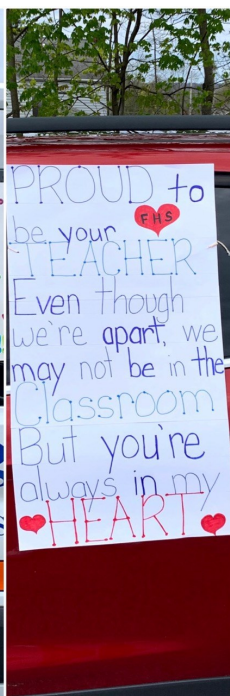 PROUD to
FHS
be your
TEACHER
Even though
we're apart, we
may not be in the
Classroom
But you're
always in my
HEART